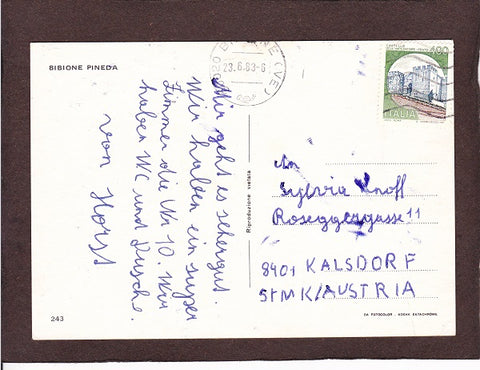 BIBIONE PINEDA
Mir geht es sehr gut.
Wir haben ein super
Zimmer die Nr 10. Wir
haben WC und Dusche.
von Horst
243
Riproduzione vietata
(VE)
23.6.83-6
400
ITALIA
An
Sylvia Knoff
Roseggergasse 11
8401 KALSDORF
STMK/AUSTRIA